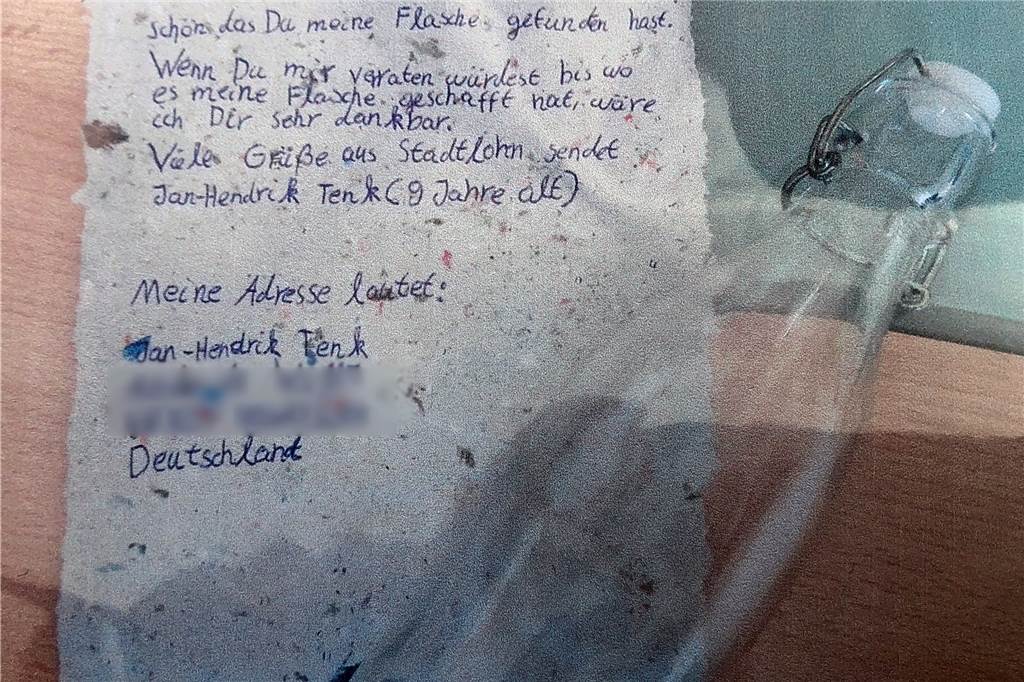 schön das Du meine Flasche gefunden hast.
Wenn Du mir veraten würdest bis wo
es meine Flasche geschafft hat, wäre
ich Dir sehr dankbar.
Viele Grüße aus Stadtlohn sendet
Jan-Hendrik Tenk (9 Jahre alt)
Meine Adresse lautet:
Jan-Hendrik Tenk
Deutschland